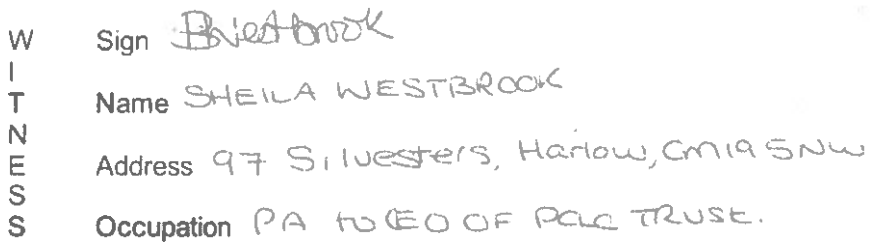 WITNESS
Sign SWestbrook
Name SHEILA WESTBROOK
Address 97 Silvesters, Harlow, CM19 5NW
Occupation PA to CEO OF PCLC TRUST.